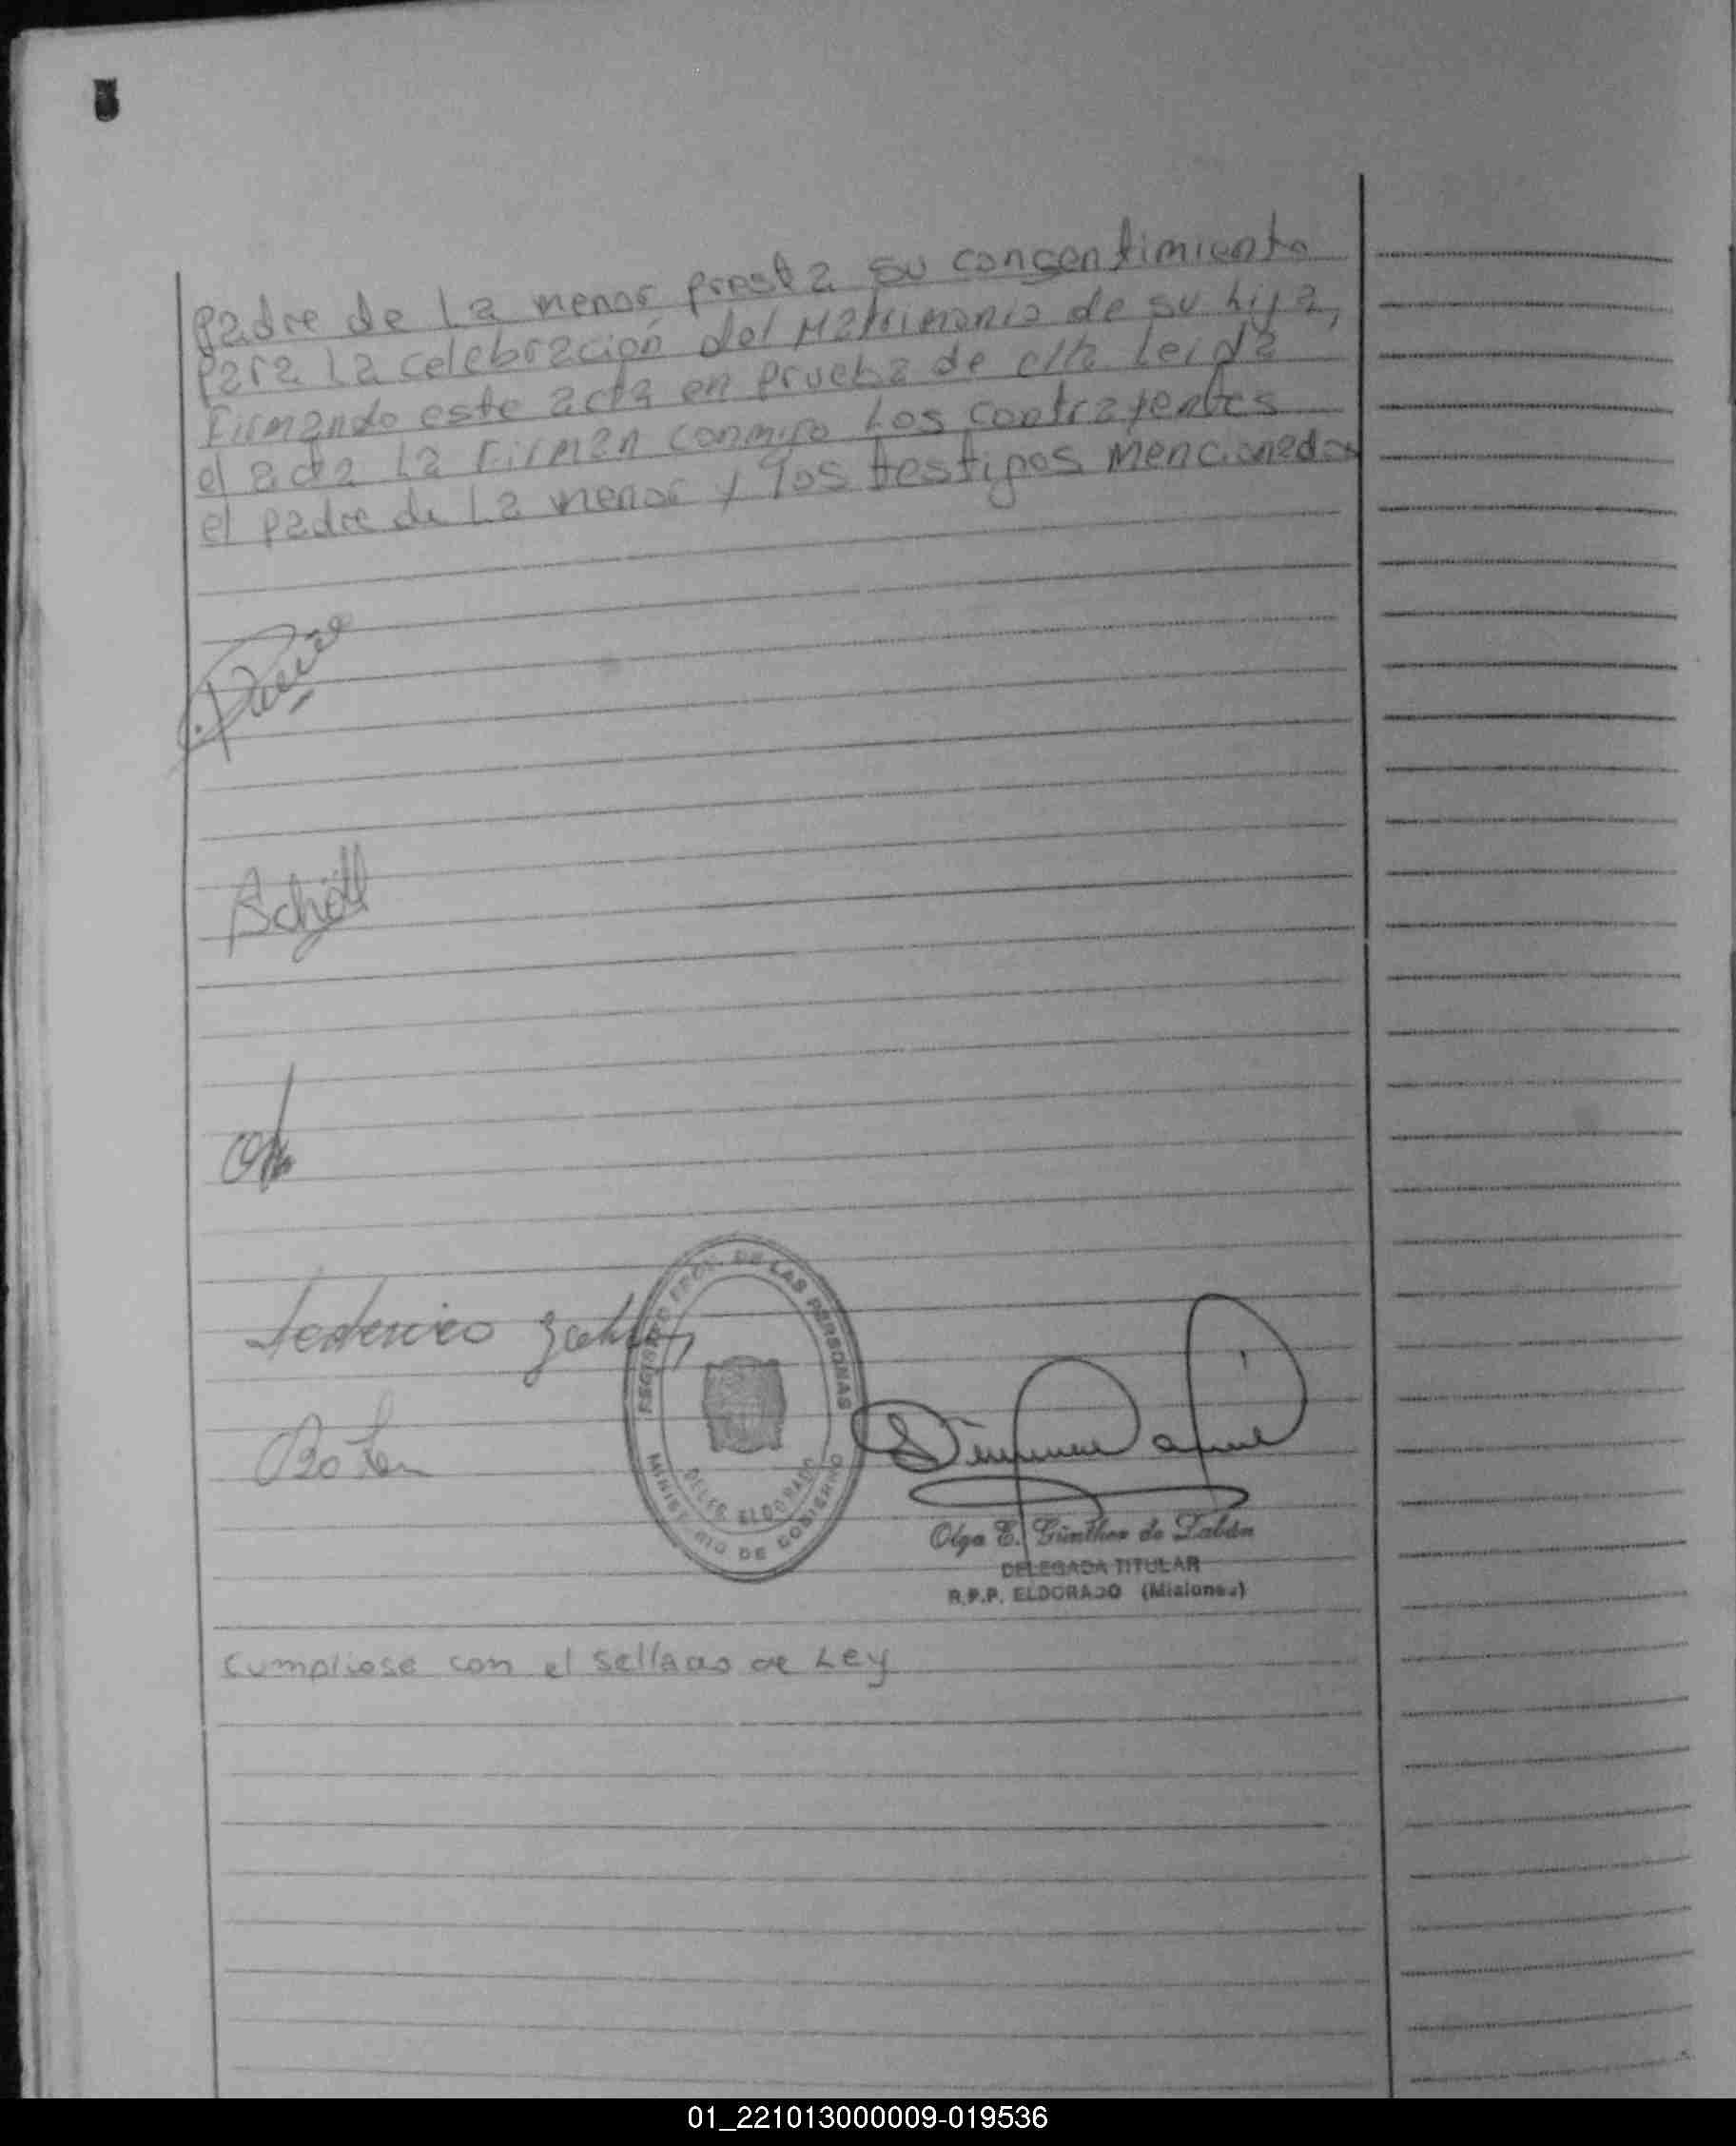 Padre de La menor presta su consentimiento
Para La celebración del Matrimonio de su hija,
Firmando este acta en prueba de ello Leida
el acta La Firman conmigo Los contrayentes
el padre de La menor y los testigos mencionados
Schöll
Federico
REGISTRO PROV. DE LAS PERSONAS
DELEG ELDORADO
MINISTERIO DE GOBIERNO
Olga E. Günther de Dabán
DELEGADA TITULAR
R.P.P. ELDORADO (Misiones)
Cumpliose con el sellado de Ley
01_221013000009-019536